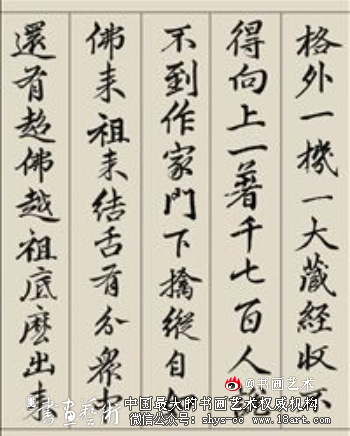 格外一機一大藏經收不
得向上一著千七百人說
不到作家門下擒縱自如
佛来祖来結舌有分衆中
還有超佛越祖底麽出来
@书画艺术
書畫藝術
中国最大的书画艺术权威机构
微信公众号：shys-cc www.18art.com